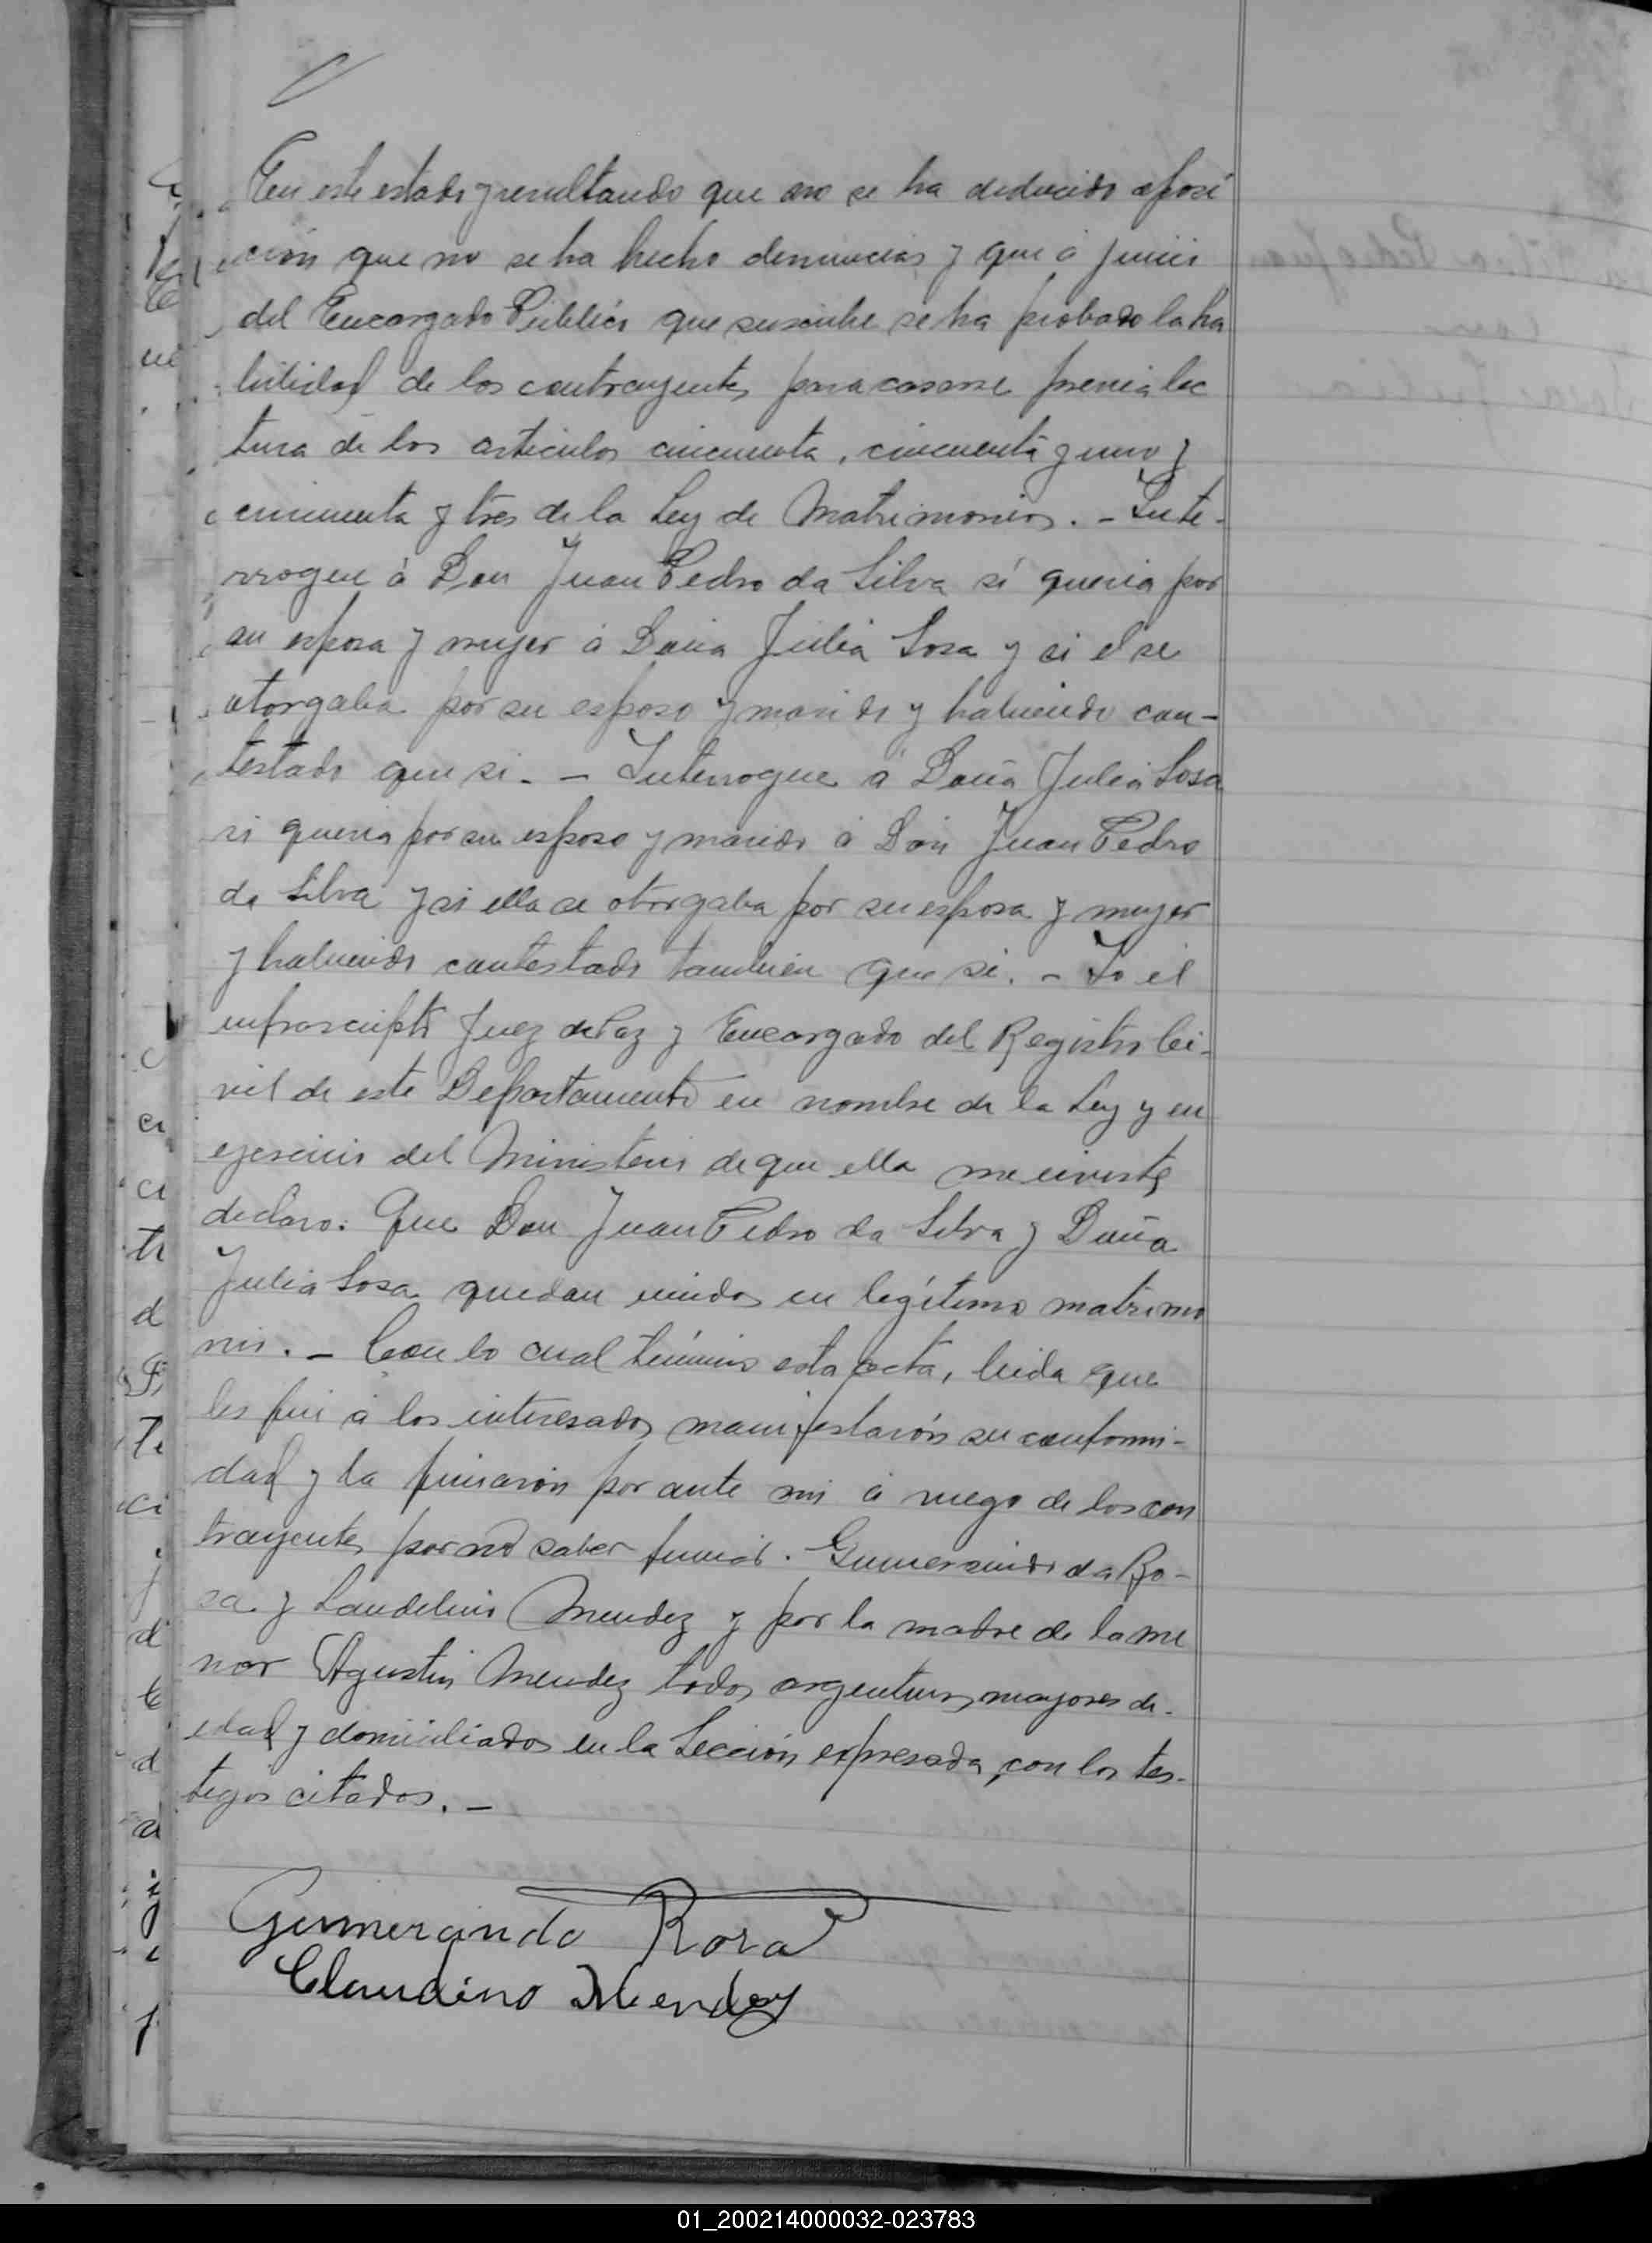 En este estado y resultando que no se ha deducido oposi
ción que no se ha hecho denuncias y que á juicio
del Encargado Público que suscribe se ha probado la ha
bilidad de los contrayentes para casarse previa lec
tura de los articulos cincuenta, cincuenta y uno y
cincuenta y tres de la Ley de Matrimonios. - Inte-
rrogue á Don Juan Pedro da Silva si queria por
su esposa y mujer á Doña Julia Sosa y si el se
otorgaba por su esposo y marido y habiendo con-
testado que si. - Interrogue á Doña Julia Sosa
si queria por su esposo y marido á Don Juan Pedro
da Silva y si ella se otorgaba por su esposa y mujer
y habiendo contestado tambien que si. - Yo el
infrascripto Juez de Paz y Encargado del Registro Ci-
vil de este Departamento en nombre de la Ley y en
ejercicio del Ministerio de que ella me inviste,
declaro: Que Don Juan Pedro da Silva y Doña
Julia Sosa quedan unidos en legítimo matrimo
nio. - Con lo cual término esta acta, leida que
les fui á los interesados manifestarón su conformi-
dad y la firmarón por ante mi á ruego de los con
trayentes por no saber firmar. Gumersindo da Ro-
sa y Laudelino Mendez y por la madre de la me
nor Agustin Mendez todos argentinos, mayores de
edad y domiciliados en la Sección expresada, con los tes-
tigos citados. -
Gumercindo Rosa
Claudino Mendez
01_200214000032-023783